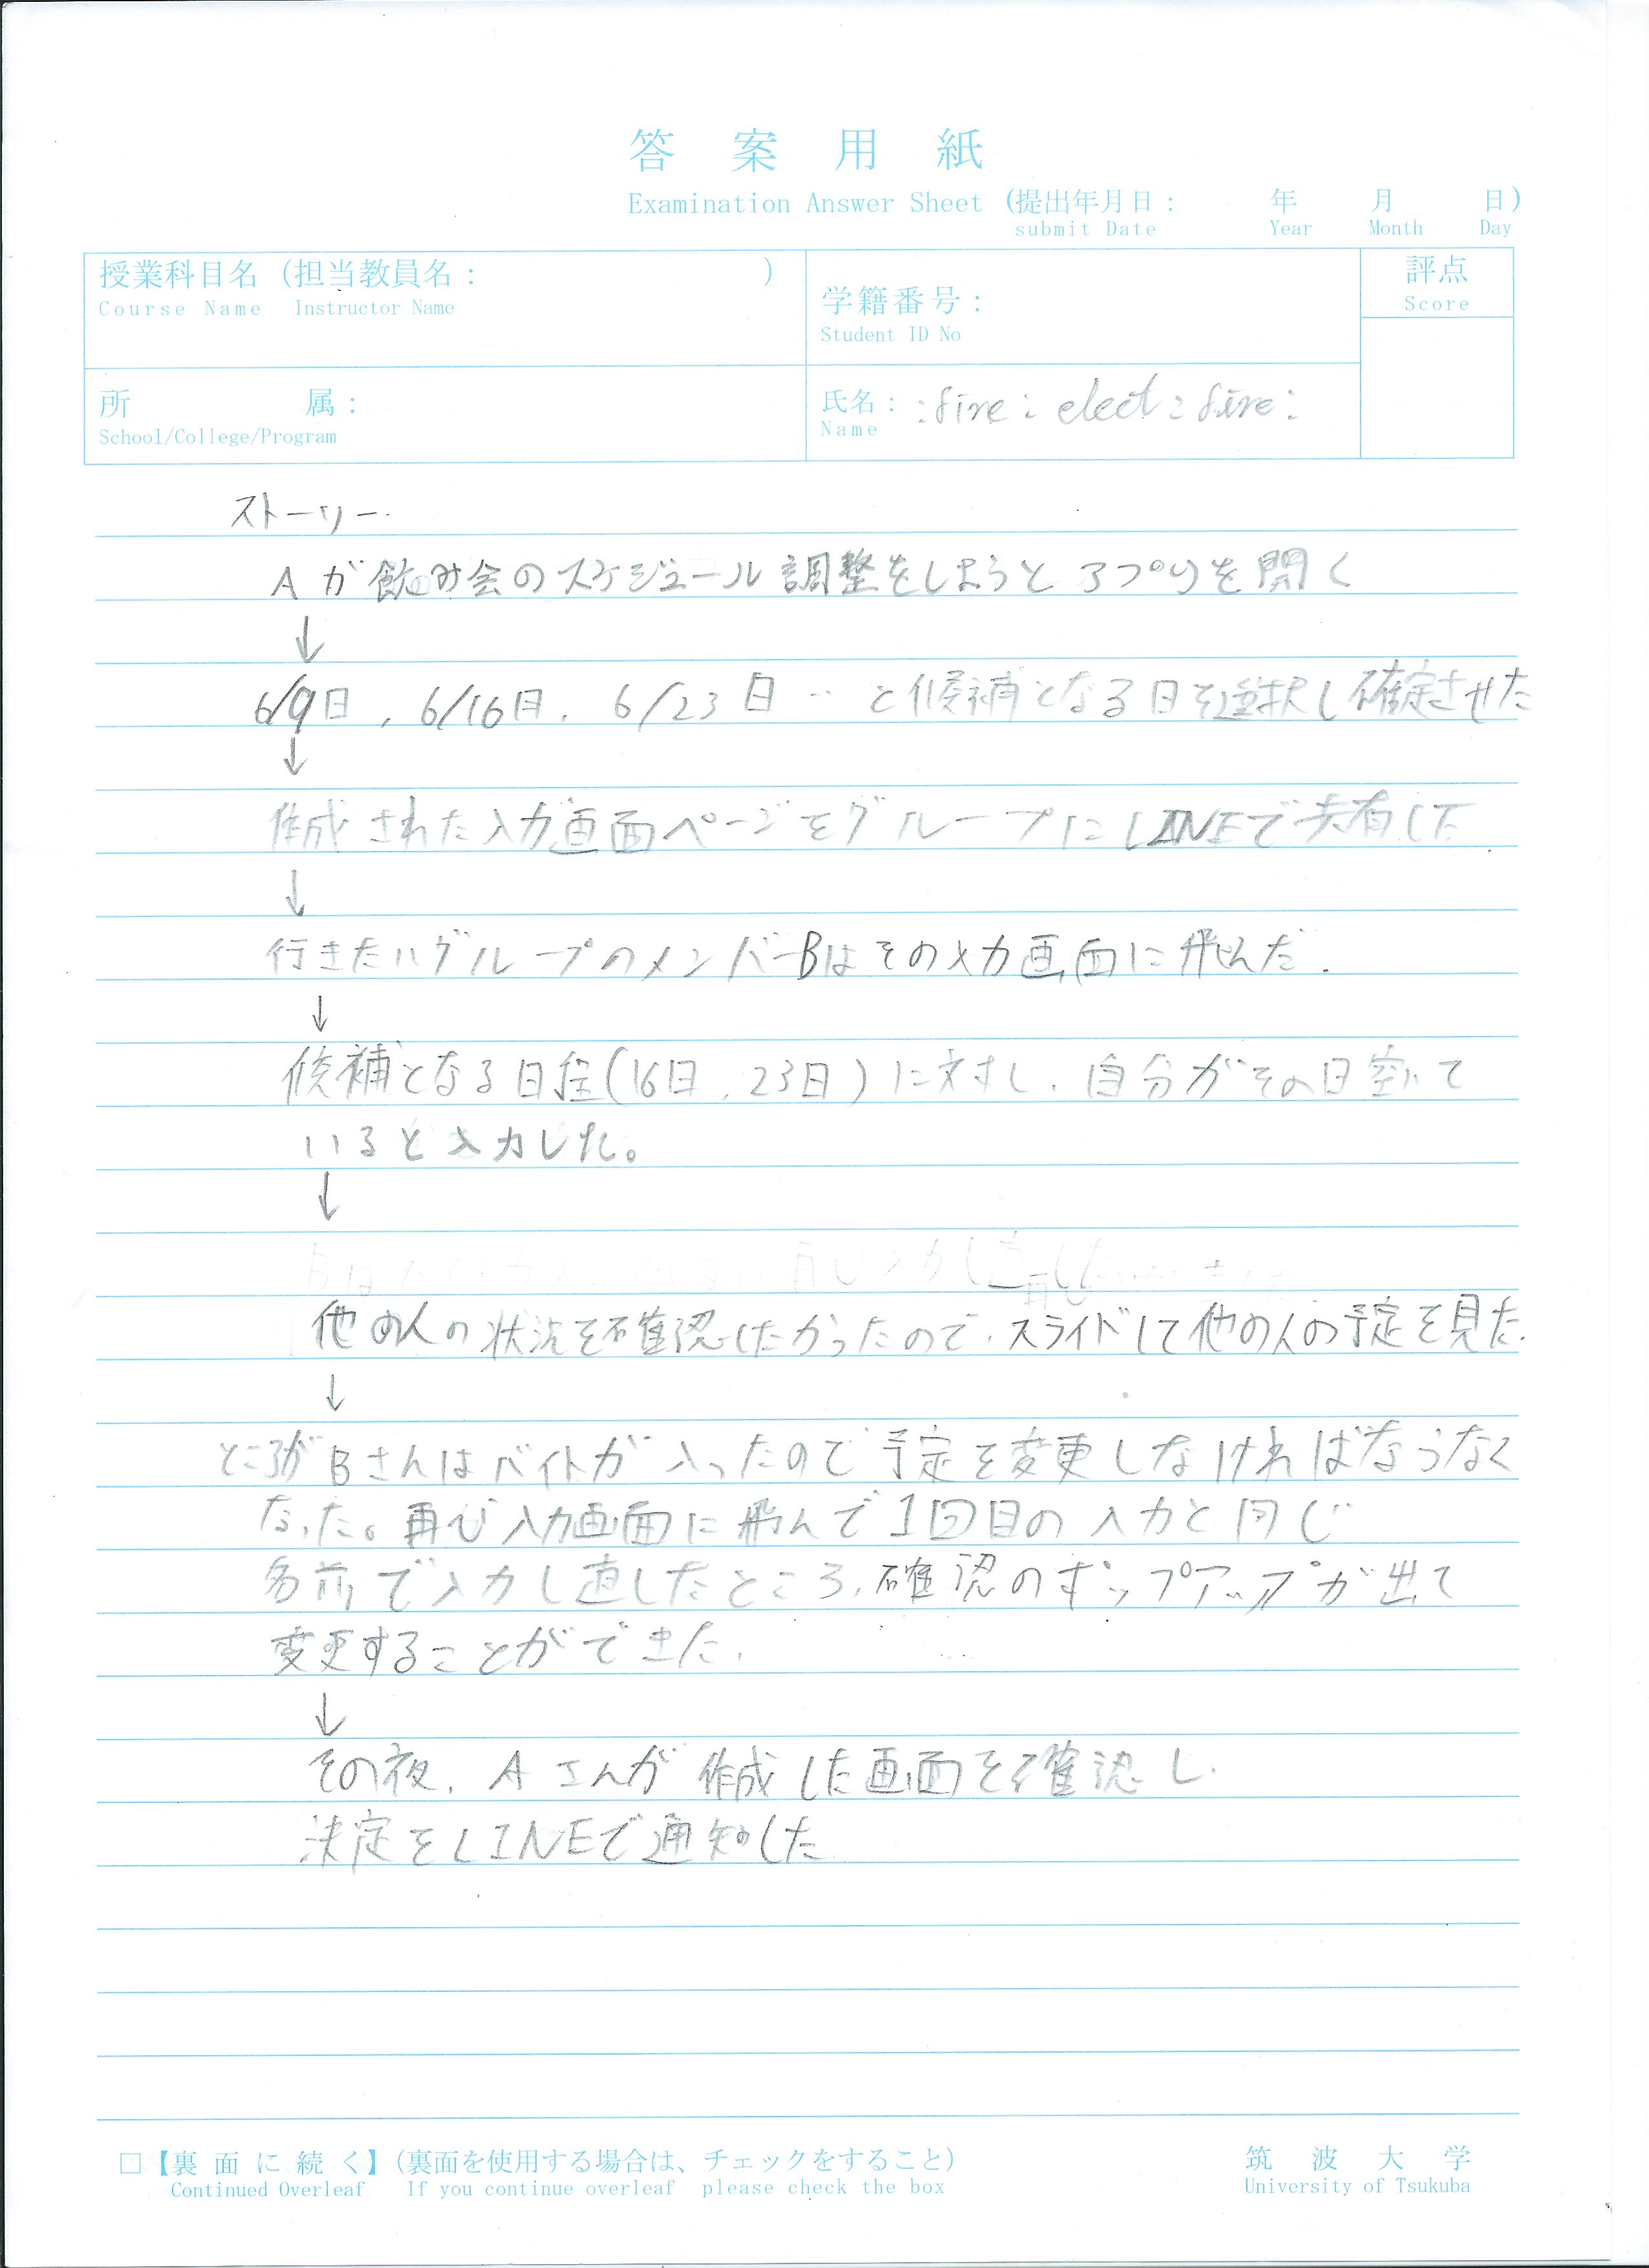 答案用紙
Examination Answer Sheet (提出年月日: 年 月 日)
submit Date Year Month Day
授業科目名(担当教員名: )
Course Name Instructor Name
学籍番号:
Student ID No
評点
Score
所属:
School/College/Program
氏名: :fire: elect: fire:
Name
ストーリー
Aが飲み会のスケジュール調整をしようとアプリを開く
↓
6/9日, 6/16日, 6/23日 … と候補となる日を選択し確定させた
↓
作成された入力画面ページをグループにLINEで共有した.
↓
行きたいグループのメンバーBはその入力画面に飛んだ.
↓
候補となる日程(16日, 23日)に対し、自分がその日空いて
いると入力した。
↓
他の人の状況を確認したかったので、スライドして他の人の予定を見た.
↓
ところがBさんはバイトが入ったので予定を変更しなければならなく
なった。再び入力画面に飛んで1回目の入力と同じ
名前で入力し直したところ、確認のポップアップが出て
変更することができた.
↓
その夜, Aさんが作成した画面を確認し、
決定をLINEで通知した
□【裏面に続く】(裏面を使用する場合は、チェックをすること)
Continued Overleaf If you continue overleaf please check the box
筑波大学
University of Tsukuba